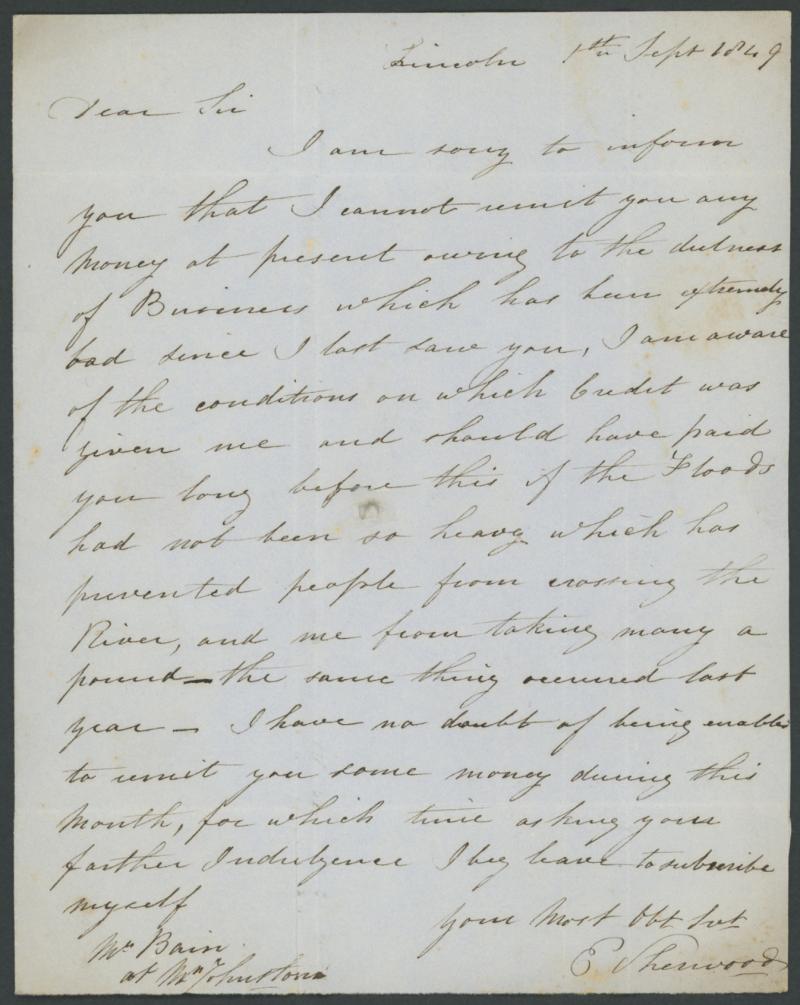 Lincoln 1th Sept 1849
Dear Sir
I am sorry to inform
you that I cannot remit you any
Money at present owing to the dulness
of Business which has been extremely
bad since I last saw you, I am aware
of the conditions on which Credit was
given me and should have paid
you long before this if the Floods
had not been so heavy which has
prevented people from crossing the
River, and me from taking many a
pound — the same thing occurred last
year — I have no doubt of being enabled
to remit you some money during this
Month, for which time asking your
farther Indulgence I beg leave to subscribe
myself
your Most Obt Svt
Mr Bain
at Mr Johnstons
E Sherwood